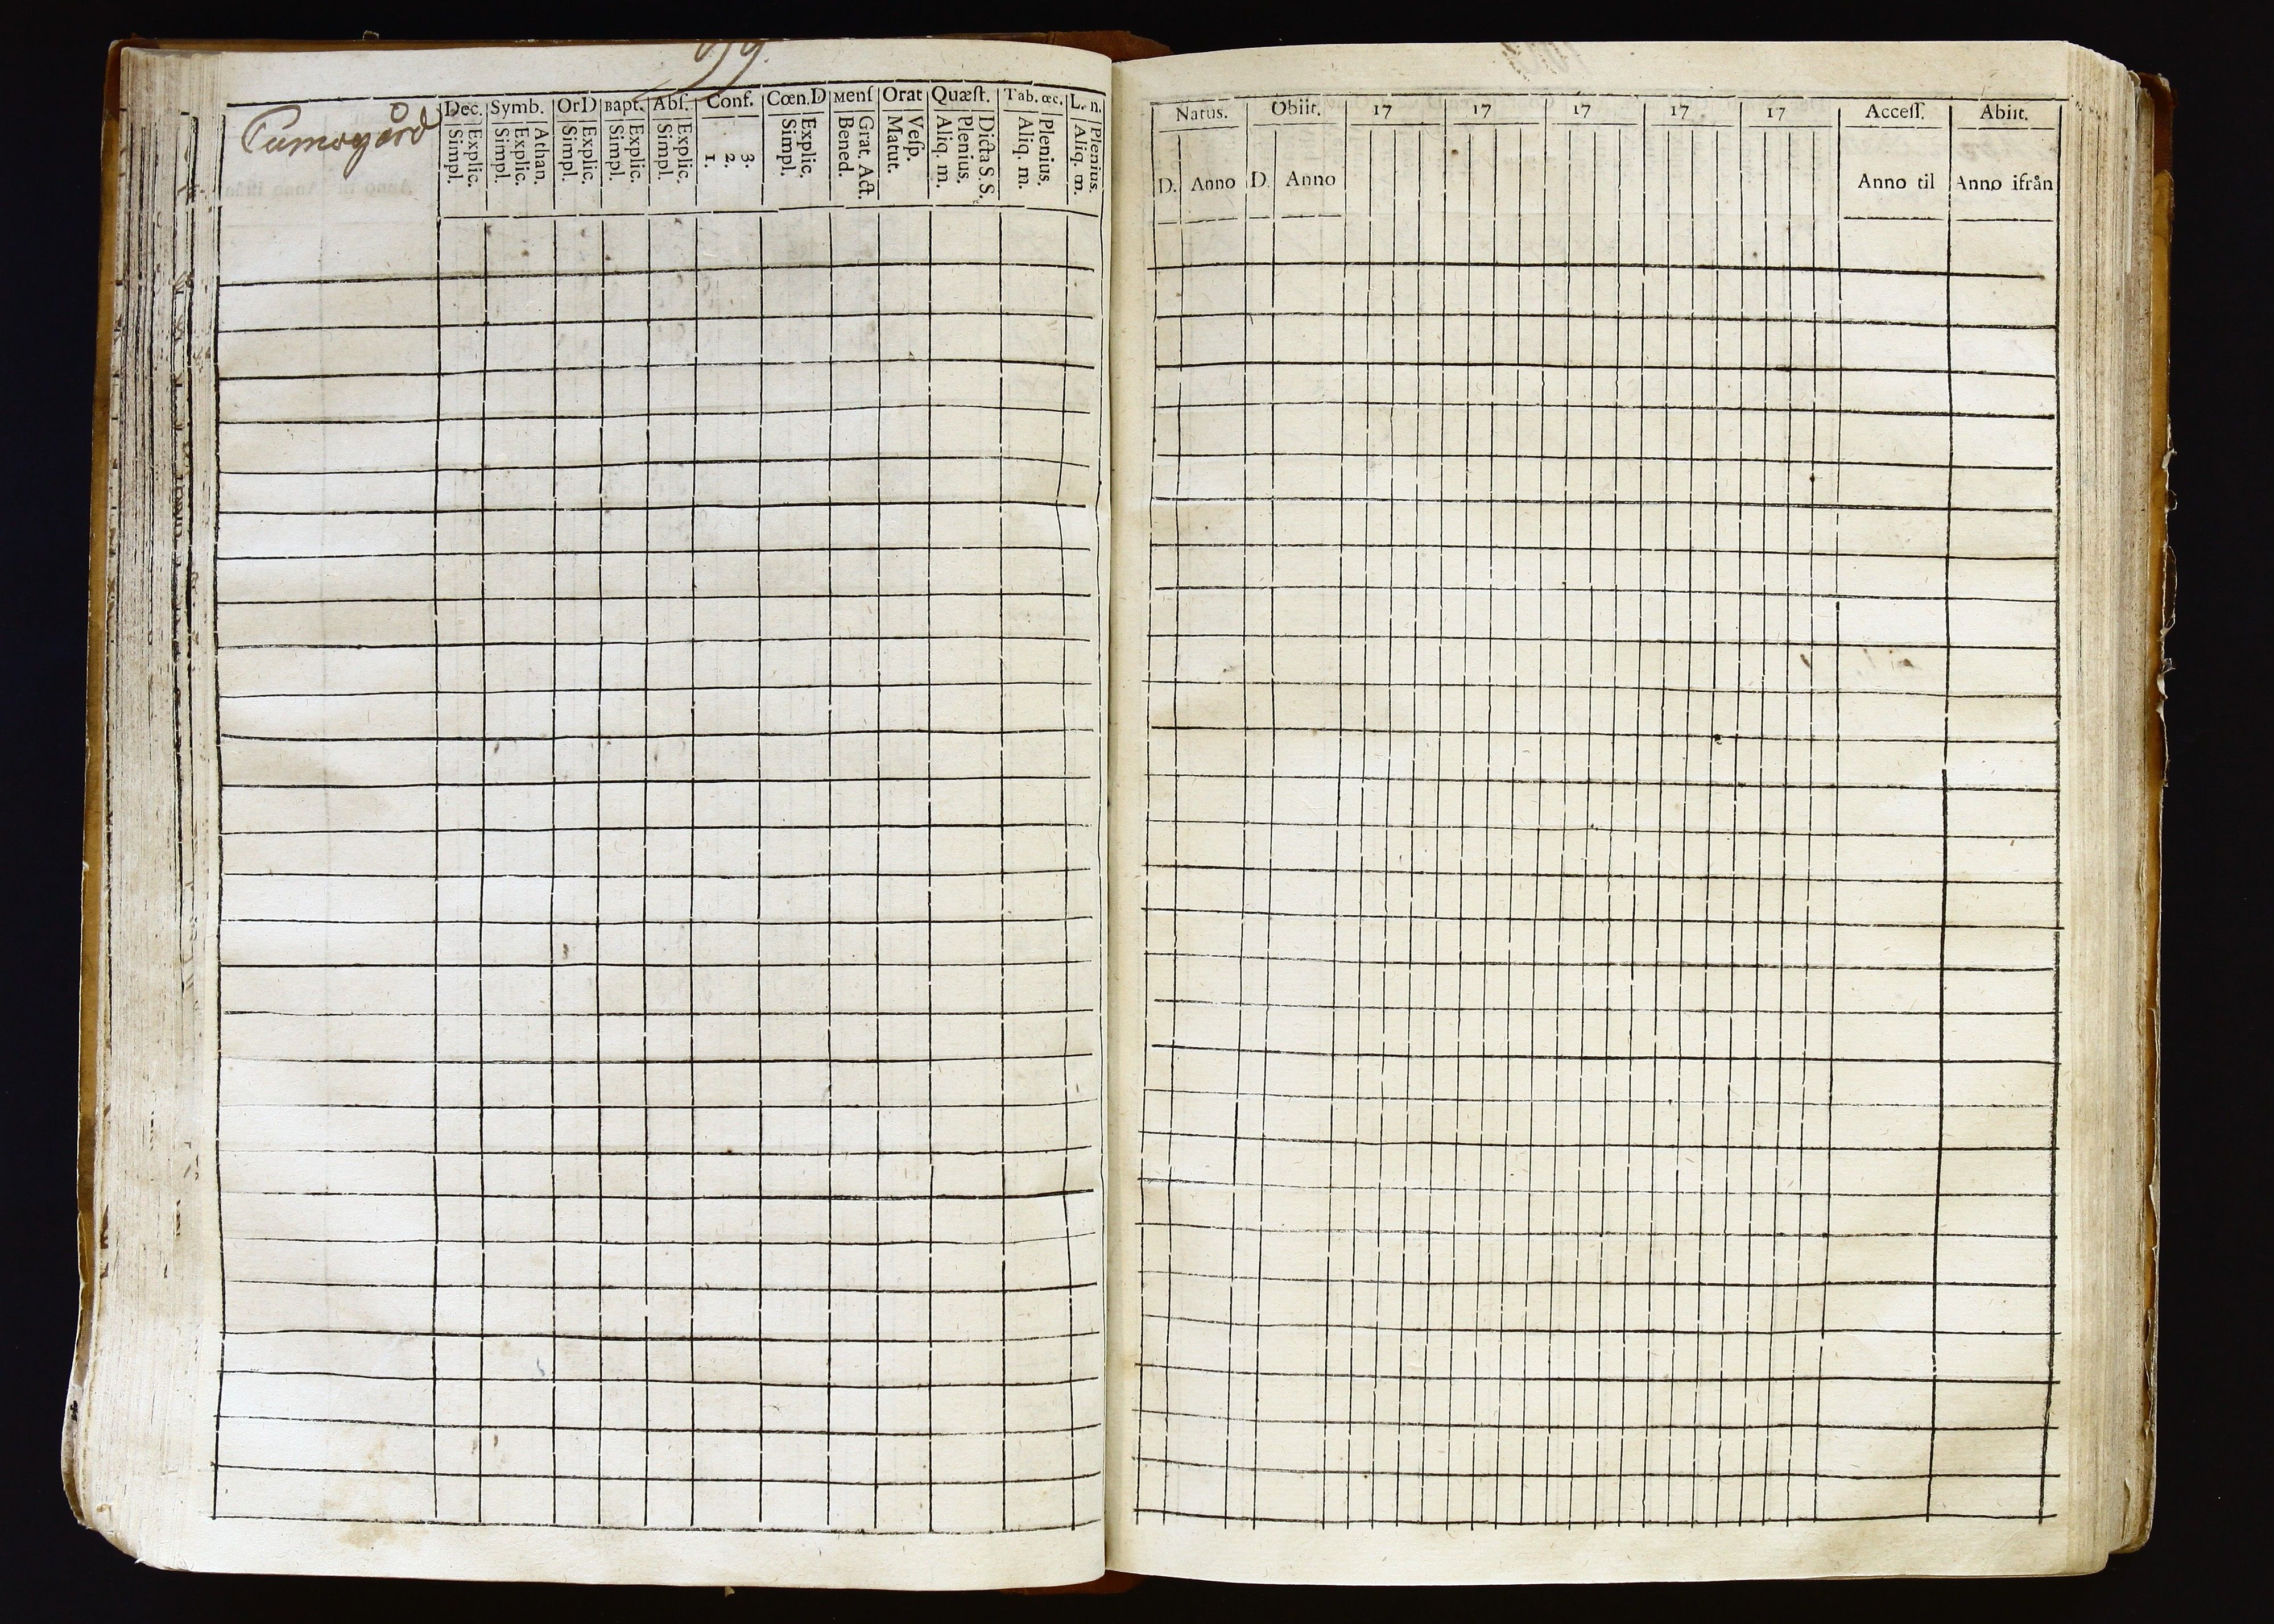 Dec. Symb. OrD Bapt. Abſ. Conf. Cœn.D Menſ Orat Quæſt. Tab. œc. L. n.
Simpl. Explic. Simpl. Explic. Athan. Simpl. Explic. Simpl. Explic. Simpl. Explic. 1. 2. 3. Simpl. Explic. Bened. Grat. Act. Matut. Veſp. Aliq. m. Plenius. Dicta S. S. Aliq. m. Plenius. Aliq. m. Plenius.
Natus. Obiit. 17 17 17 17 17 Acceſſ. Abiit.
D. Anno D. Anno Anno til Anno ifrån